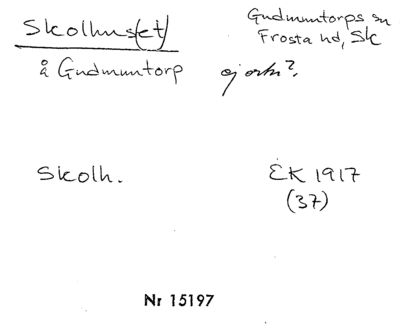 Skolhus(et)
Gudmuntorps sn
Frosta hd, Sk
å Gudmuntorp
ej ortn?
Skolh.
EK 1917
(37)
Nr 15197